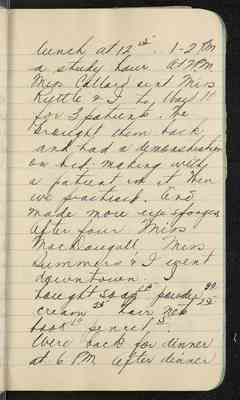 lunch at 12 15. 1-2 PM
a study hour. At 2 PM
Miss Collard sent Miss
Kyttle & I to Ward 11
for 2 patients. We
brought them back
and had a demonstration
on bed-making with
a patient in it then
we practised. And
made more
After four Miss
MacDougall, Miss
Summers & I went
downtown. I
bought soap powder
cream 25 hair net
book
Were back for dinner
at 6 PM after dinner